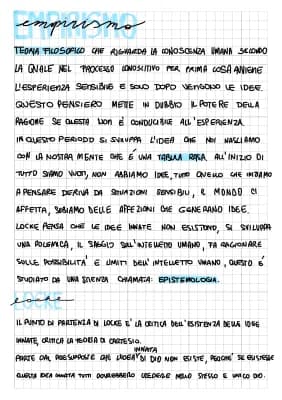 EMPIRISMO
empirismo
TEORIA FILOSOFICO CHE RIGUARDA LA CONOSCENZA UMANA SECONDO
LA QUALE NEL PROCESSO CONOSCITIVO PER PRIMA COSA AVVIENE
L'ESPERIENZA SENSIBILE E SOLO DOPO VENGONO LE IDEE.
QUESTO PENSIERO METTE IN DUBBIO IL POTERE DELLA
RAGIONE SE QUESTA NON È CONDUCIBILE ALL'ESPERIENZA.
IN QUESTO PERIODO SI SVILUPPA L'IDEA CHE NOI NASCIAMO
CON LA NOSTRA MENTE CHE È UNA TABULA RASA. ALL'INIZIO DI
TUTTO SIAMO VUOTI, NON ABBIAMO IDEE, TUTTO QUELLO CHE INIZIAMO
A PENSARE DERIVA DA SITUAZIONI SENSIBILI, IL MONDO CI
AFFETTA, SUBIAMO DELLE AFFEZIONI CHE GENERANO IDEE.
LOCKE PENSA CHE LE IDEE INNATE NON ESISTONO, SI SVILUPPA
UNA POLEMICA, IL SAGGIO SULL'INTELLETTO UMANO, FA RAGIONARE
SULLE POSSIBILITÀ E LIMITI DELL'INTELLETTO UMANO, QUESTO È
STUDIATO DA UNA SCIENZA CHIAMATA: EPISTEMOLOGIA.
LOCKE
locke
IL PUNTO DI PARTENZA DI LOCKE È LA CRITICA DELL'ESISTENZA DELLE IDEE
INNATE, CRITICA LA TEORIA DI CARTESIO.
PARTE DAL PRESUPPOSTO CHE L'IDEA INNATA DI DIO NON ESISTE, PERCHÉ SE ESISTESSE
QUESTA IDEA INNATA TUTTI DOVREBBERO CREDERE NELLO STESSO E UNICO DIO.